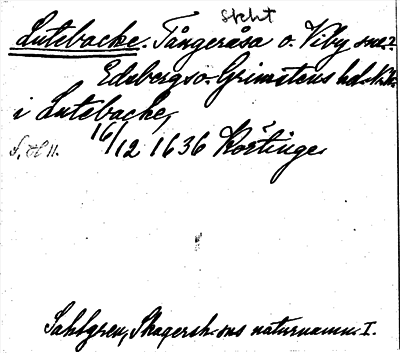 skht
Lutebacke. Tångeråsa o. Viby snr?
Edsbergs o. Grimstens hd. När.
i Lutebacke,
16/12 1636 Kortinge
Sahlgren, Skagersh.-ons naturnamn I.